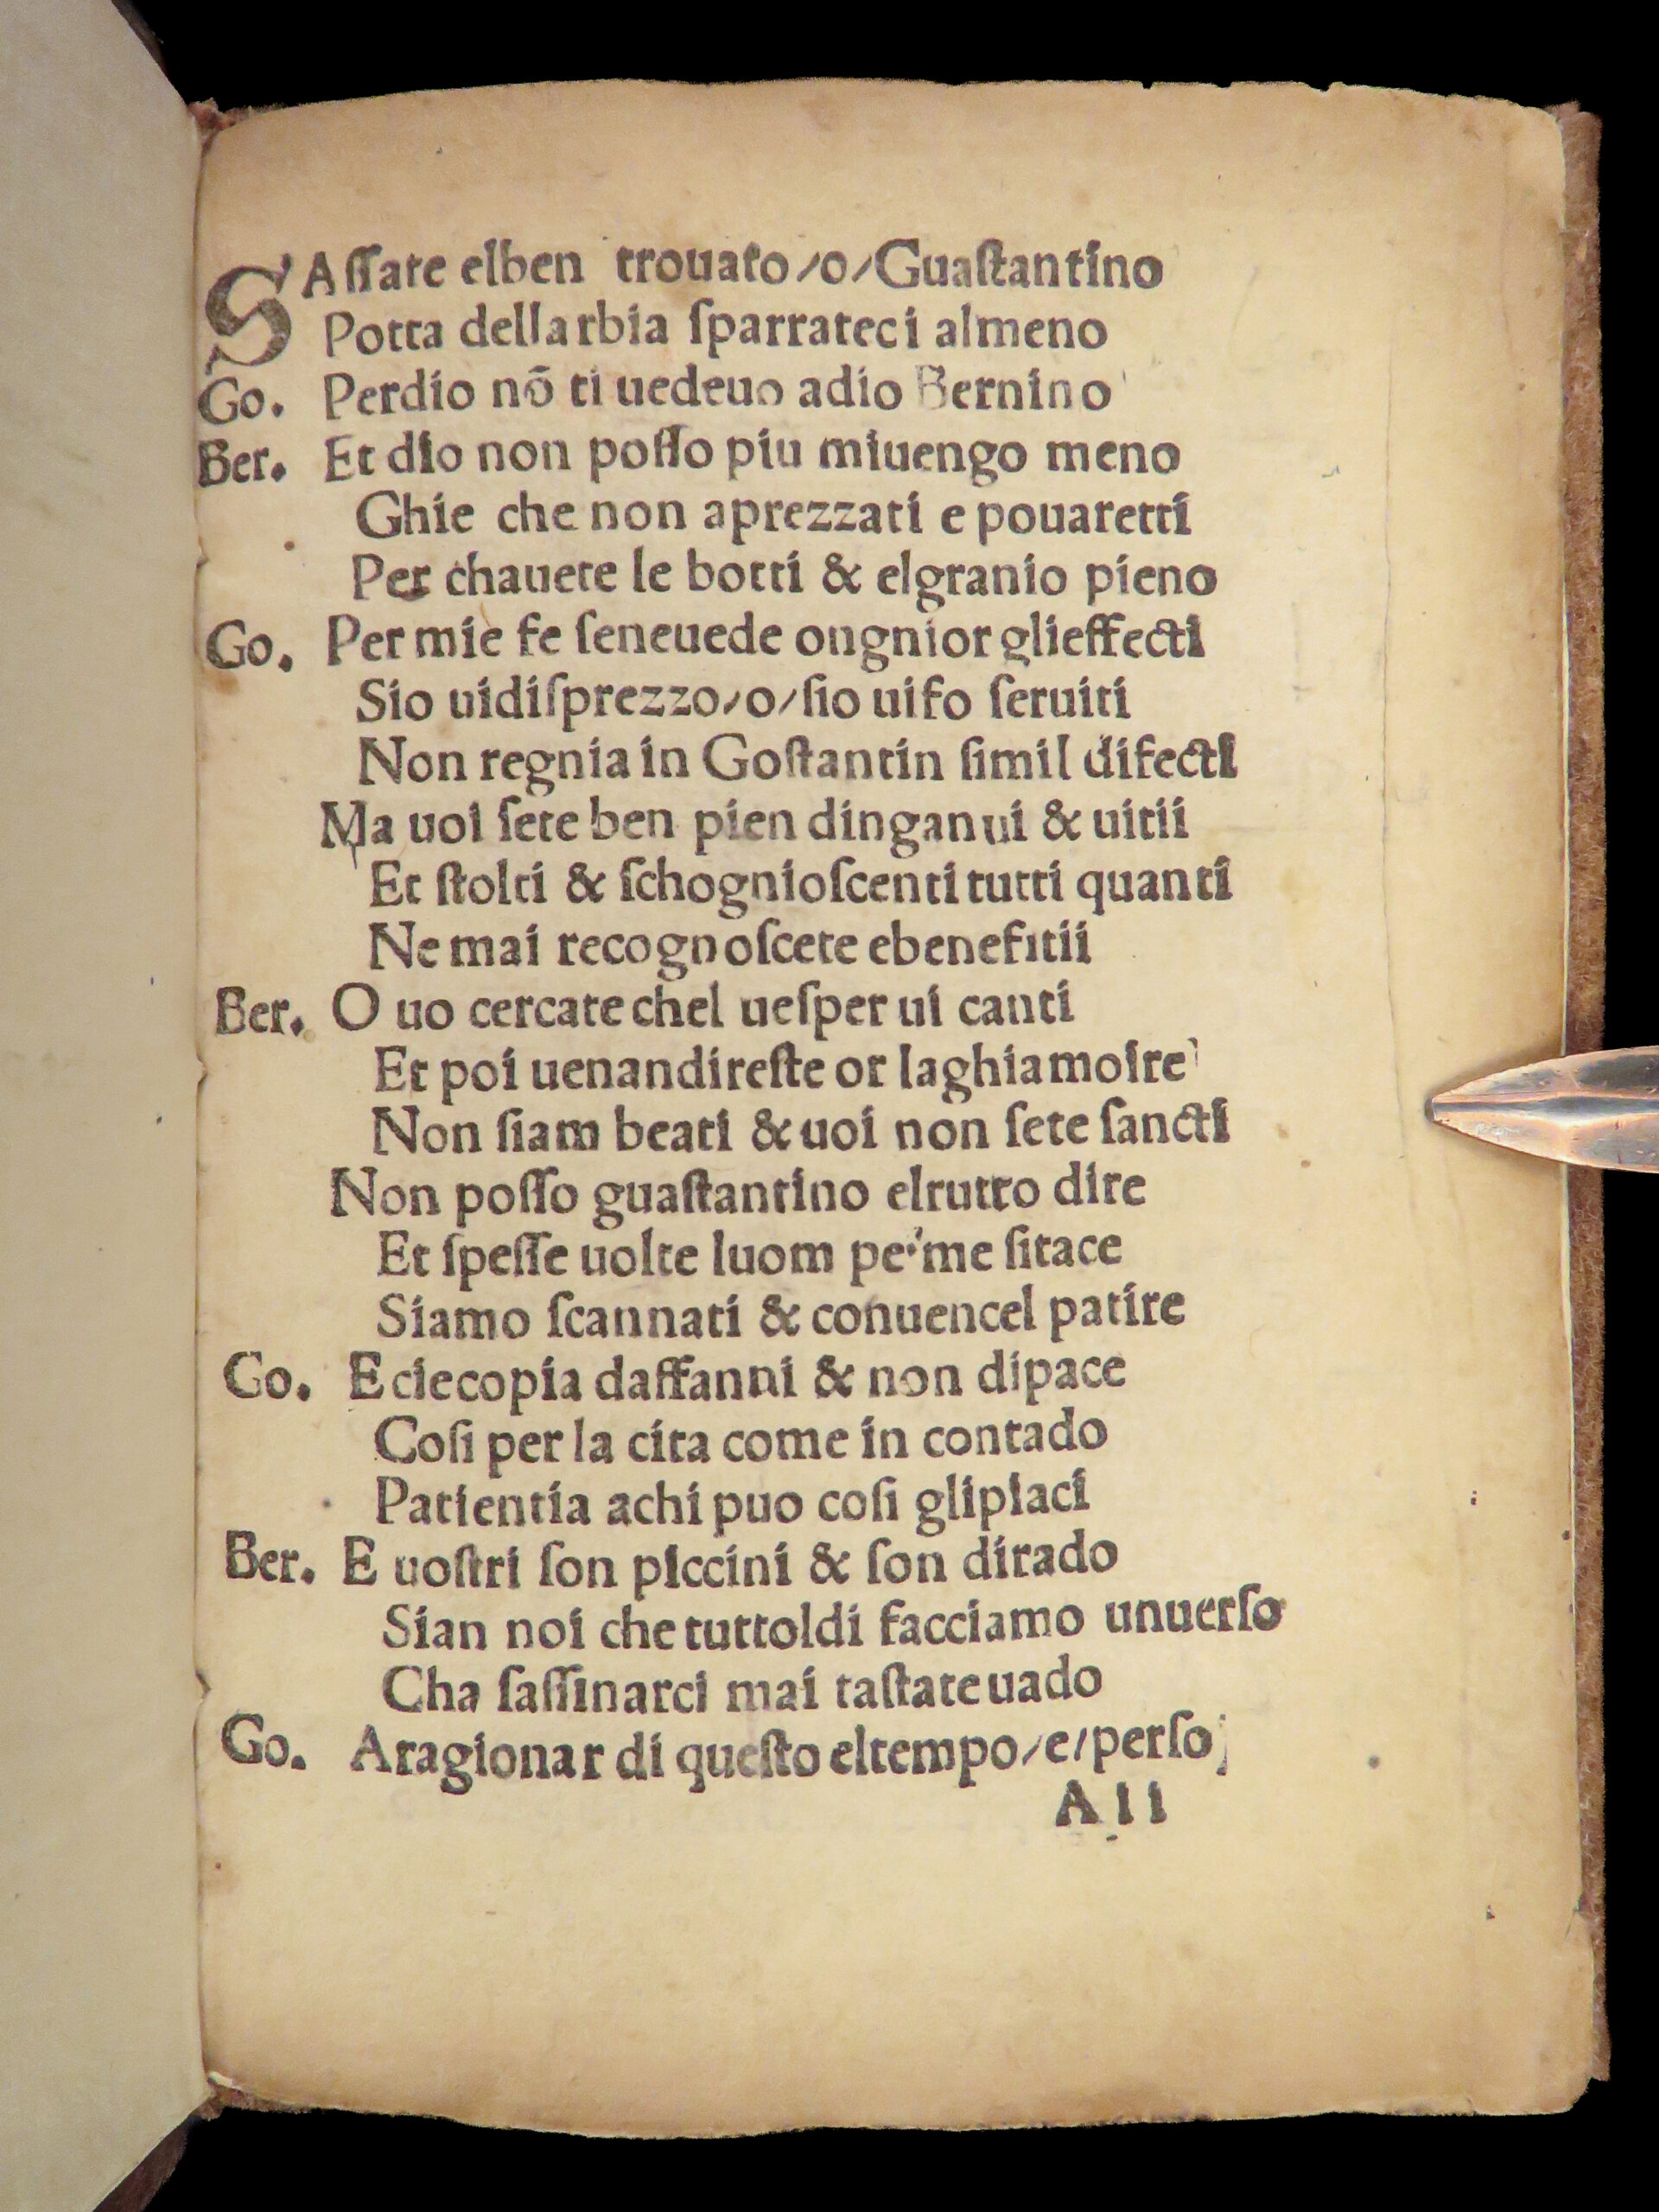 SAſſate elben trouato/o/Guaſtantino
Potta dellarbia ſparrateci almeno
Go. Perdio nõ ti uedeuo adio Bernino
Ber. Et dio non poſſo piu miuengo meno
Ghie che non aprezzati e pouaretti
Per chauete le botti & elgranio pieno
Go. Per mie fe ſeneuede ongnior glieffecti
Sio uidiſprezzo/o/ſio uifo ſeruiti
Non regnia in Goſtantin ſimil difecti
Ma uoi ſete ben pien dinganui & uitii
Et ſtolti & ſchognioſcenti tutti quanti
Ne mai recognoſcete ebenefitii
Ber. O uo cercate chel ueſper ui canti
Et poi uenandireſte or laghiamoire
Non ſiam beati & uoi non ſete ſancti
Non poſſo guaſtantino elrutto dire
Et ſpeſſe uolte luom per me ſitace
Siamo ſcannati & conuencel patire
Go. E ciecopia daffanni & non dipace
Coſi per la cita come in contado
Patientia achi puo coſi glipiaci
Ber. E uoſtri ſon piccini & ſon dirado
Sian noi che tuttoldi facciamo unuerſo
Cha ſaſſinarci mai taſtate uado
Go. Aragionar di queſto eltempo/e/perſo
A II